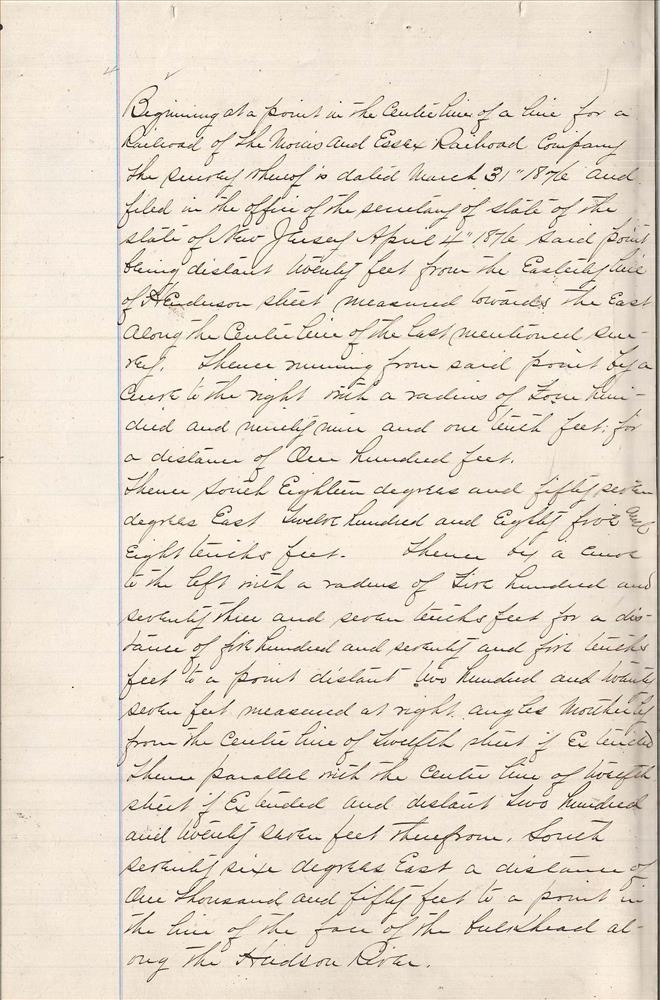 Beginning at a point in the Centre line of a line for a
Railroad of the Morris and Essex Railroad Company
the survey whereof is dated March 31" 1876 and
filed in the office of the secretary of state of the
state of New Jersey April 4" 1876 said point
being distant twenty feet from the Easterly line
of Henderson street measured towards the East
along the Centre line of the last mentioned sur-
vey. Thence running from said point by a
curve to the right with a radius of Four hun-
dred and ninety nine and one tenth feet; for
a distance of One hundred feet.
Thence South Eighteen degrees and fifty seven
degrees East Twelve hundred and Eighty five and
Eight tenths feet. Thence by a curve
to the left with a radius of Five hundred and
seventy three and seven tenths feet for a dis-
tance of five hundred and seventy and five tenths
feet to a point distant two hundred and twenty
seven feet measured at right angles Northerly
from the Centre line of Twelfth street if Extended
Thence parallel with the Centre line of twelfth
street if Extended and distant Two hundred
and twenty seven feet therefrom. South
seventy six degrees East a distance of
One thousand and fifty feet to a point in
the line of the face of the bulkhead al-
ong the Hudson River.